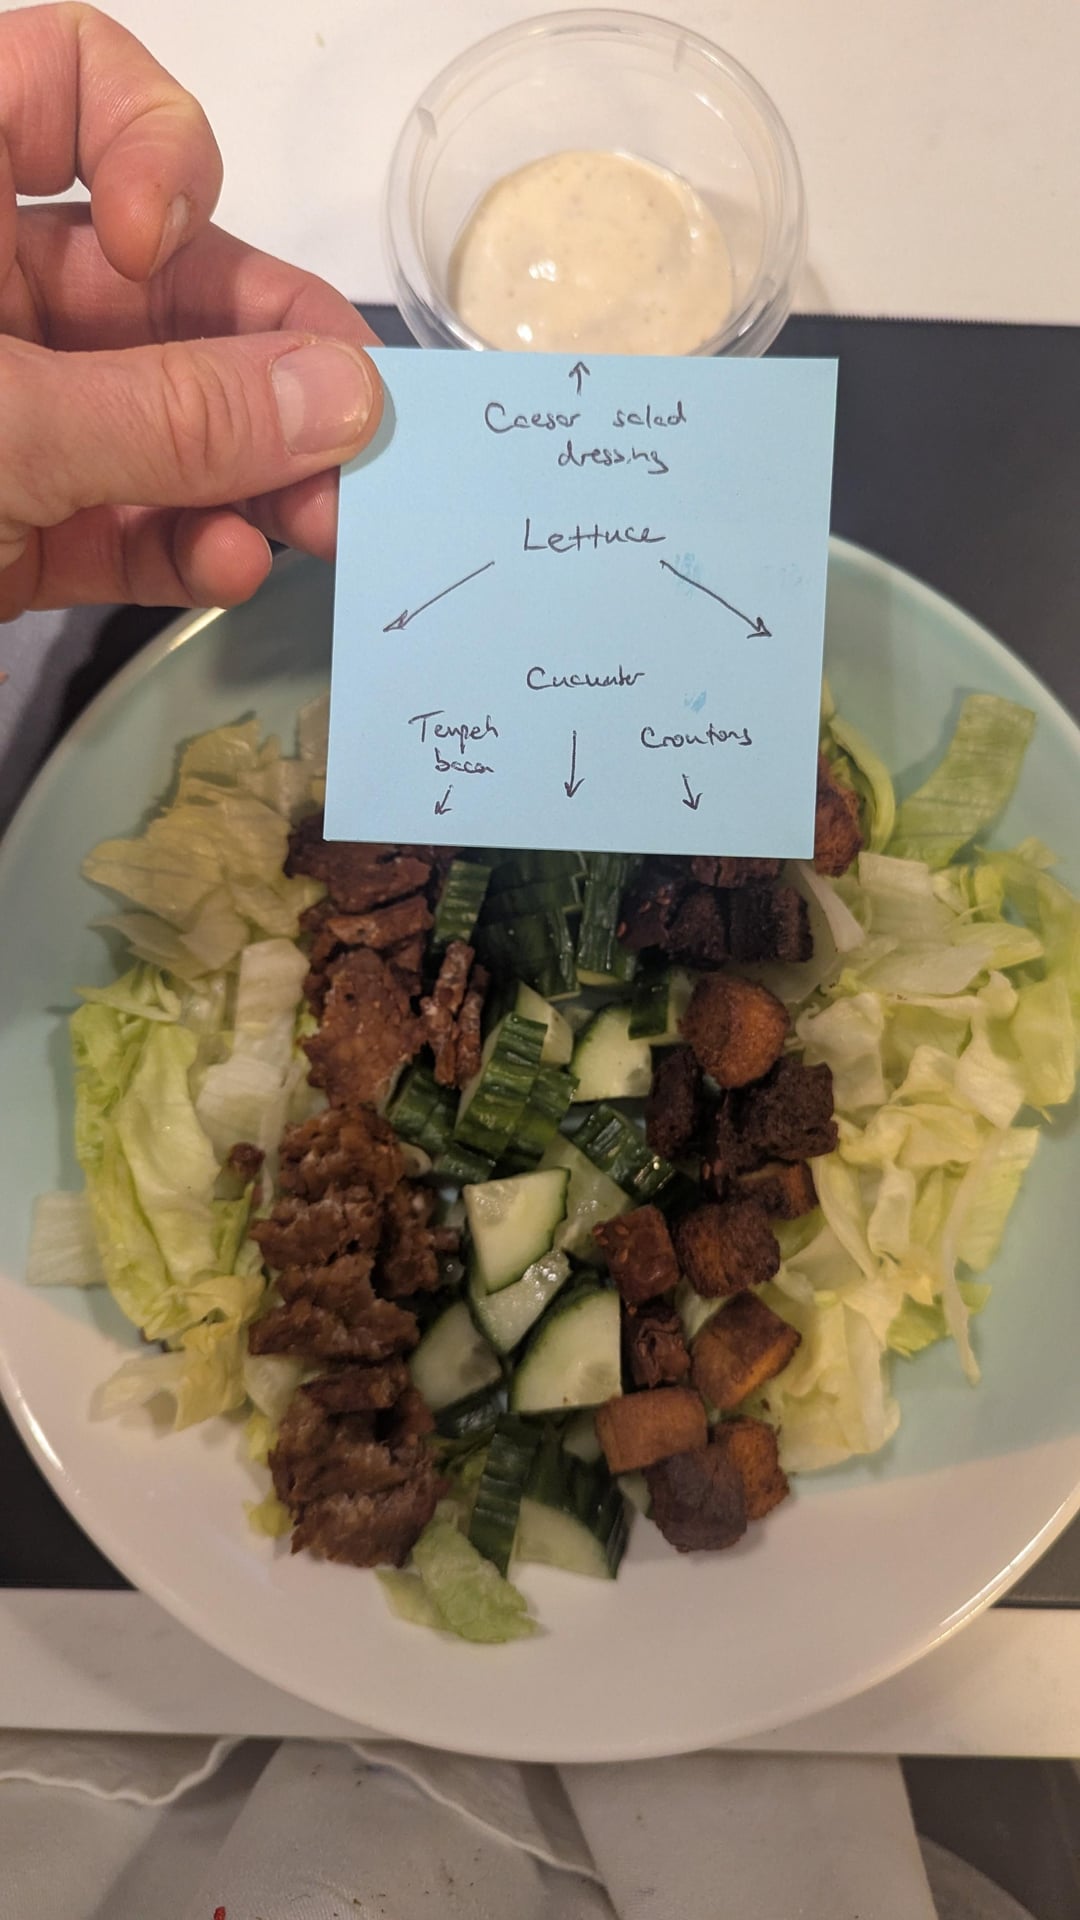 Caesar salad
dressing
Lettuce
Cucumber
Tempeh
bacon
Croutons